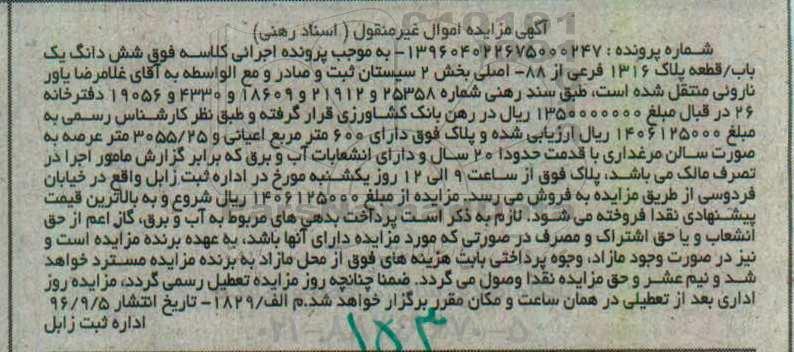 آگهی مزایده اموال غیرمنقول ( اسناد رهنی)
شماره پرونده : ۱۳۹۶۰۴۰۲۲۶۷۵۰۰۰۲۴۷- به موجب پرونده اجرائی کلاسه فوق شش دانگ یک
باب/قطعه پلاک ۱۳۱۶ فرعی از ۸۸- اصلی بخش ۲ سیستان ثبت و صادر و مع الواسطه به آقای غلامرضا یاور
ناروئی منتقل شده است، طبق سند رهنی شماره ۲۵۳۵۸ و ۲۱۹۱۲ و ۱۸۶۰۹ و ۴۳۳۰ و ۱۹۰۵۶ دفترخانه
۲۶ در قبال مبلغ ۱۳۵۰۰۰۰۰۰۰ ریال در رهن بانک کشاورزی قرار گرفته و طبق نظر کارشناس رسمی به
مبلغ ۱۴۰۶۱۲۵۰۰۰ ریال ارزیابی شده و پلاک فوق دارای ۶۰۰ متر مربع اعیانی و ۳۰۵۵/۲۵ متر عرصه به
صورت سالن مرغداری با قدمت حدودا ۲۰ سال و دارای انشعابات آب و برق که برابر گزارش مامور اجرا در
تصرف مالک می باشد، پلاک فوق از ساعت ۹ الی ۱۲ روز یکشنبه مورخ در اداره ثبت زابل واقع در خیابان
فردوسی از طریق مزایده به فروش می رسد. مزایده از مبلغ ۱۴۰۶۱۲۵۰۰۰ ریال شروع و به بالاترین قیمت
پیشنهادی نقدا فروخته می شود. لازم به ذکر است پرداخت بدهی های مربوط به آب و برق، گاز اعم از حق
انشعاب و یا حق اشتراک و مصرف در صورتی که مورد مزایده دارای آنها باشد، به عهده برنده مزایده است و
نیز در صورت وجود مازاد، وجوه پرداختی بابت هزینه های فوق از محل مازاد به برنده مزایده مسترد خواهد
شد و نیم عشر و حق مزایده نقدا وصول می گردد. ضمنا چنانچه روز مزایده تعطیل رسمی گردد، مزایده روز
اداری بعد از تعطیلی در همان ساعت و مکان مقرر برگزار خواهد شد.م الف/۱۸۲۹- تاریخ انتشار ۹۶/۹/۵
اداره ثبت زابل
۱۵۳